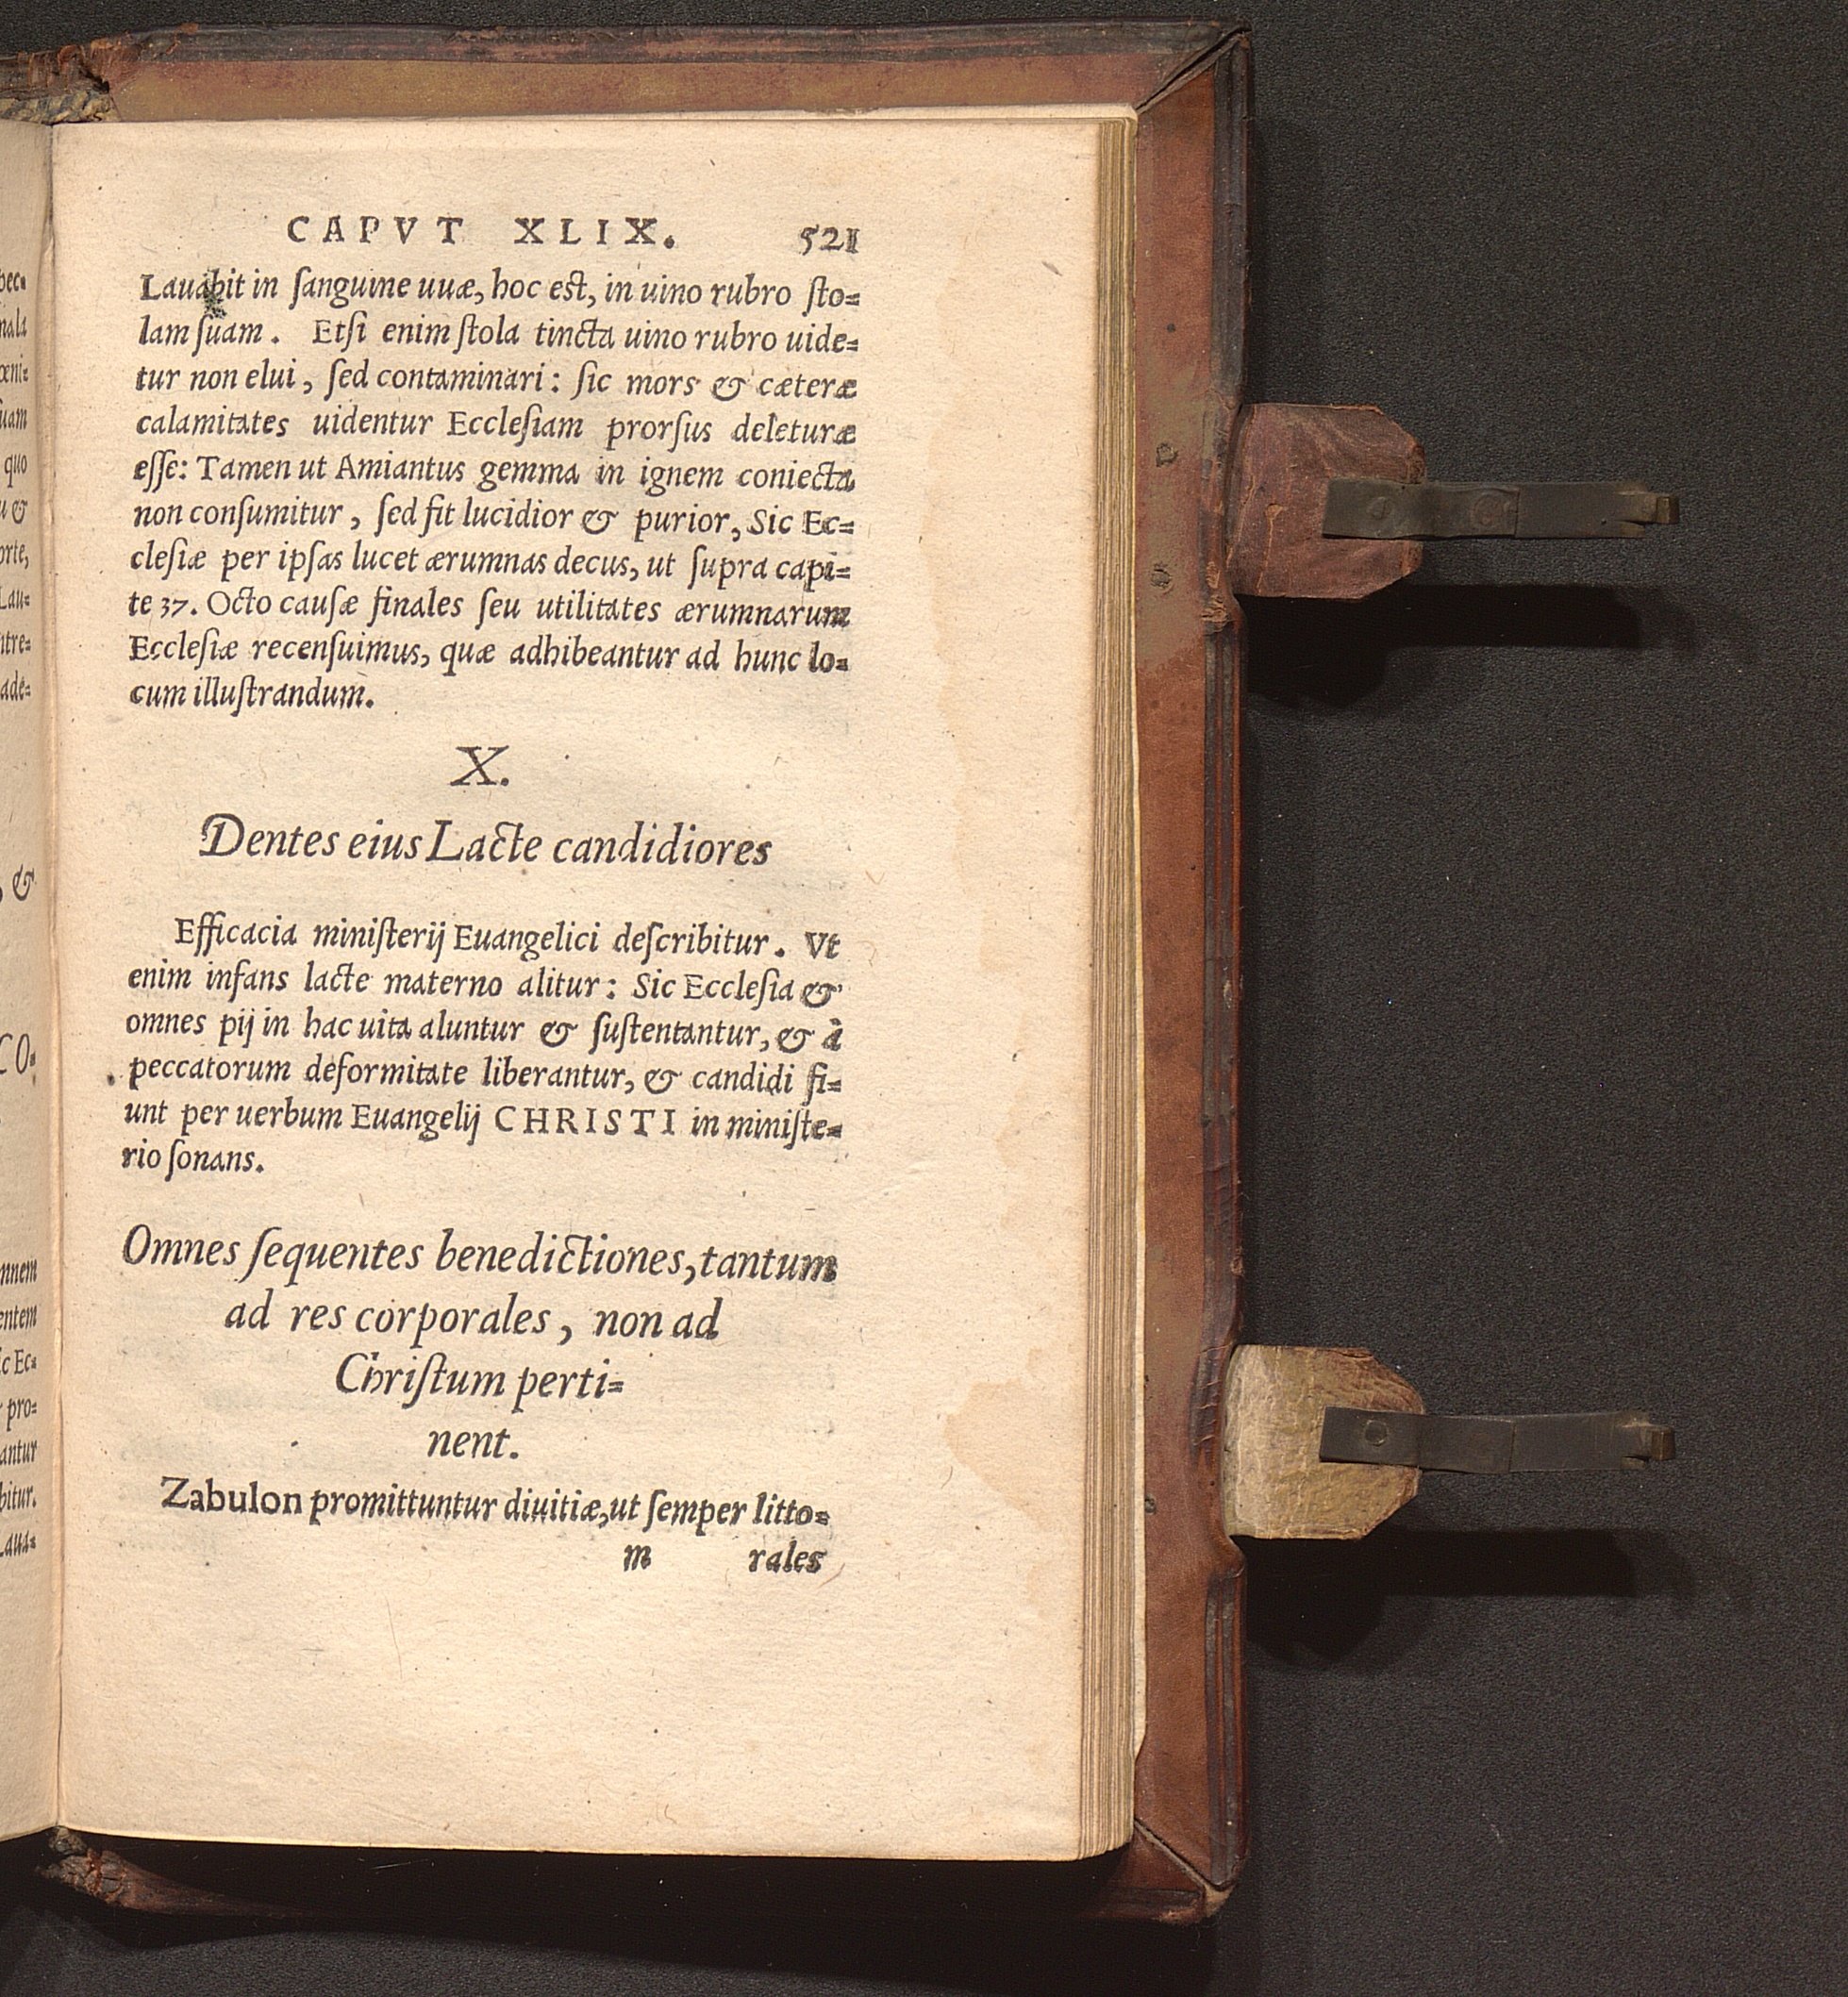 CAPVT XLIX. 521
Lauabit in ſanguine uuæ, hoc est, in uino rubro ſto=
lam ſuam. Etſi enim ſtola tincta uino rubro uide=
tur non elui, ſed contaminari: ſic mors & cæteræ
calamitates uidentur Eccleſiam prorſus deleturæ
eſſe: Tamen ut Amiantus gemma in ignem coniecta
non conſumitur, ſed fit lucidior & purior, Sic Ec=
cleſiæ per ipſas lucet ærumnas decus, ut ſupra capi=
te 37. Octo cauſæ finales ſeu utilitates ærumnarum
Eccleſiæ recenſuimus, quæ adhibeantur ad hunc lo=
cum illuſtrandum.
X.
Dentes eius Lacte candidiores
Efficacia miniſterij Euangelici deſcribitur. Vt
enim infans lacte materno alitur: Sic Eccleſia &
omnes pij in hac uita aluntur & ſuſtentantur, & à
peccatorum deformitate liberantur, & candidi fi=
unt per uerbum Euangelij CHRISTI in miniſte=
rio ſonans.
Omnes ſequentes benedictiones, tantum
ad res corporales, non ad
Chriſtum perti=
nent.
Zabulon promittuntur diuitiæ, ut ſemper litto=
m rales